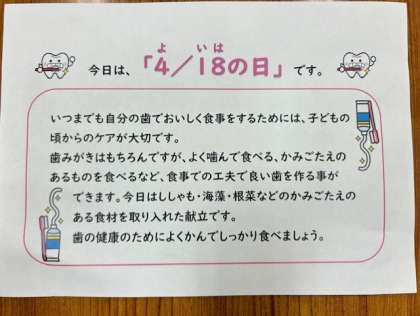 よ い は
今日は、「4/18の日」です。
いつまでも自分の歯でおいしく食事をするためには、子どもの
頃からのケアが大切です。
歯みがきはもちろんですが、よく噛んで食べる、かみごたえの
あるものを食べるなど、食事での工夫で良い歯を作る事が
できます。今日はししゃも・海藻・根菜などのかみごたえの
ある食材を取り入れた献立です。
歯の健康のためによくかんでしっかり食べましょう。